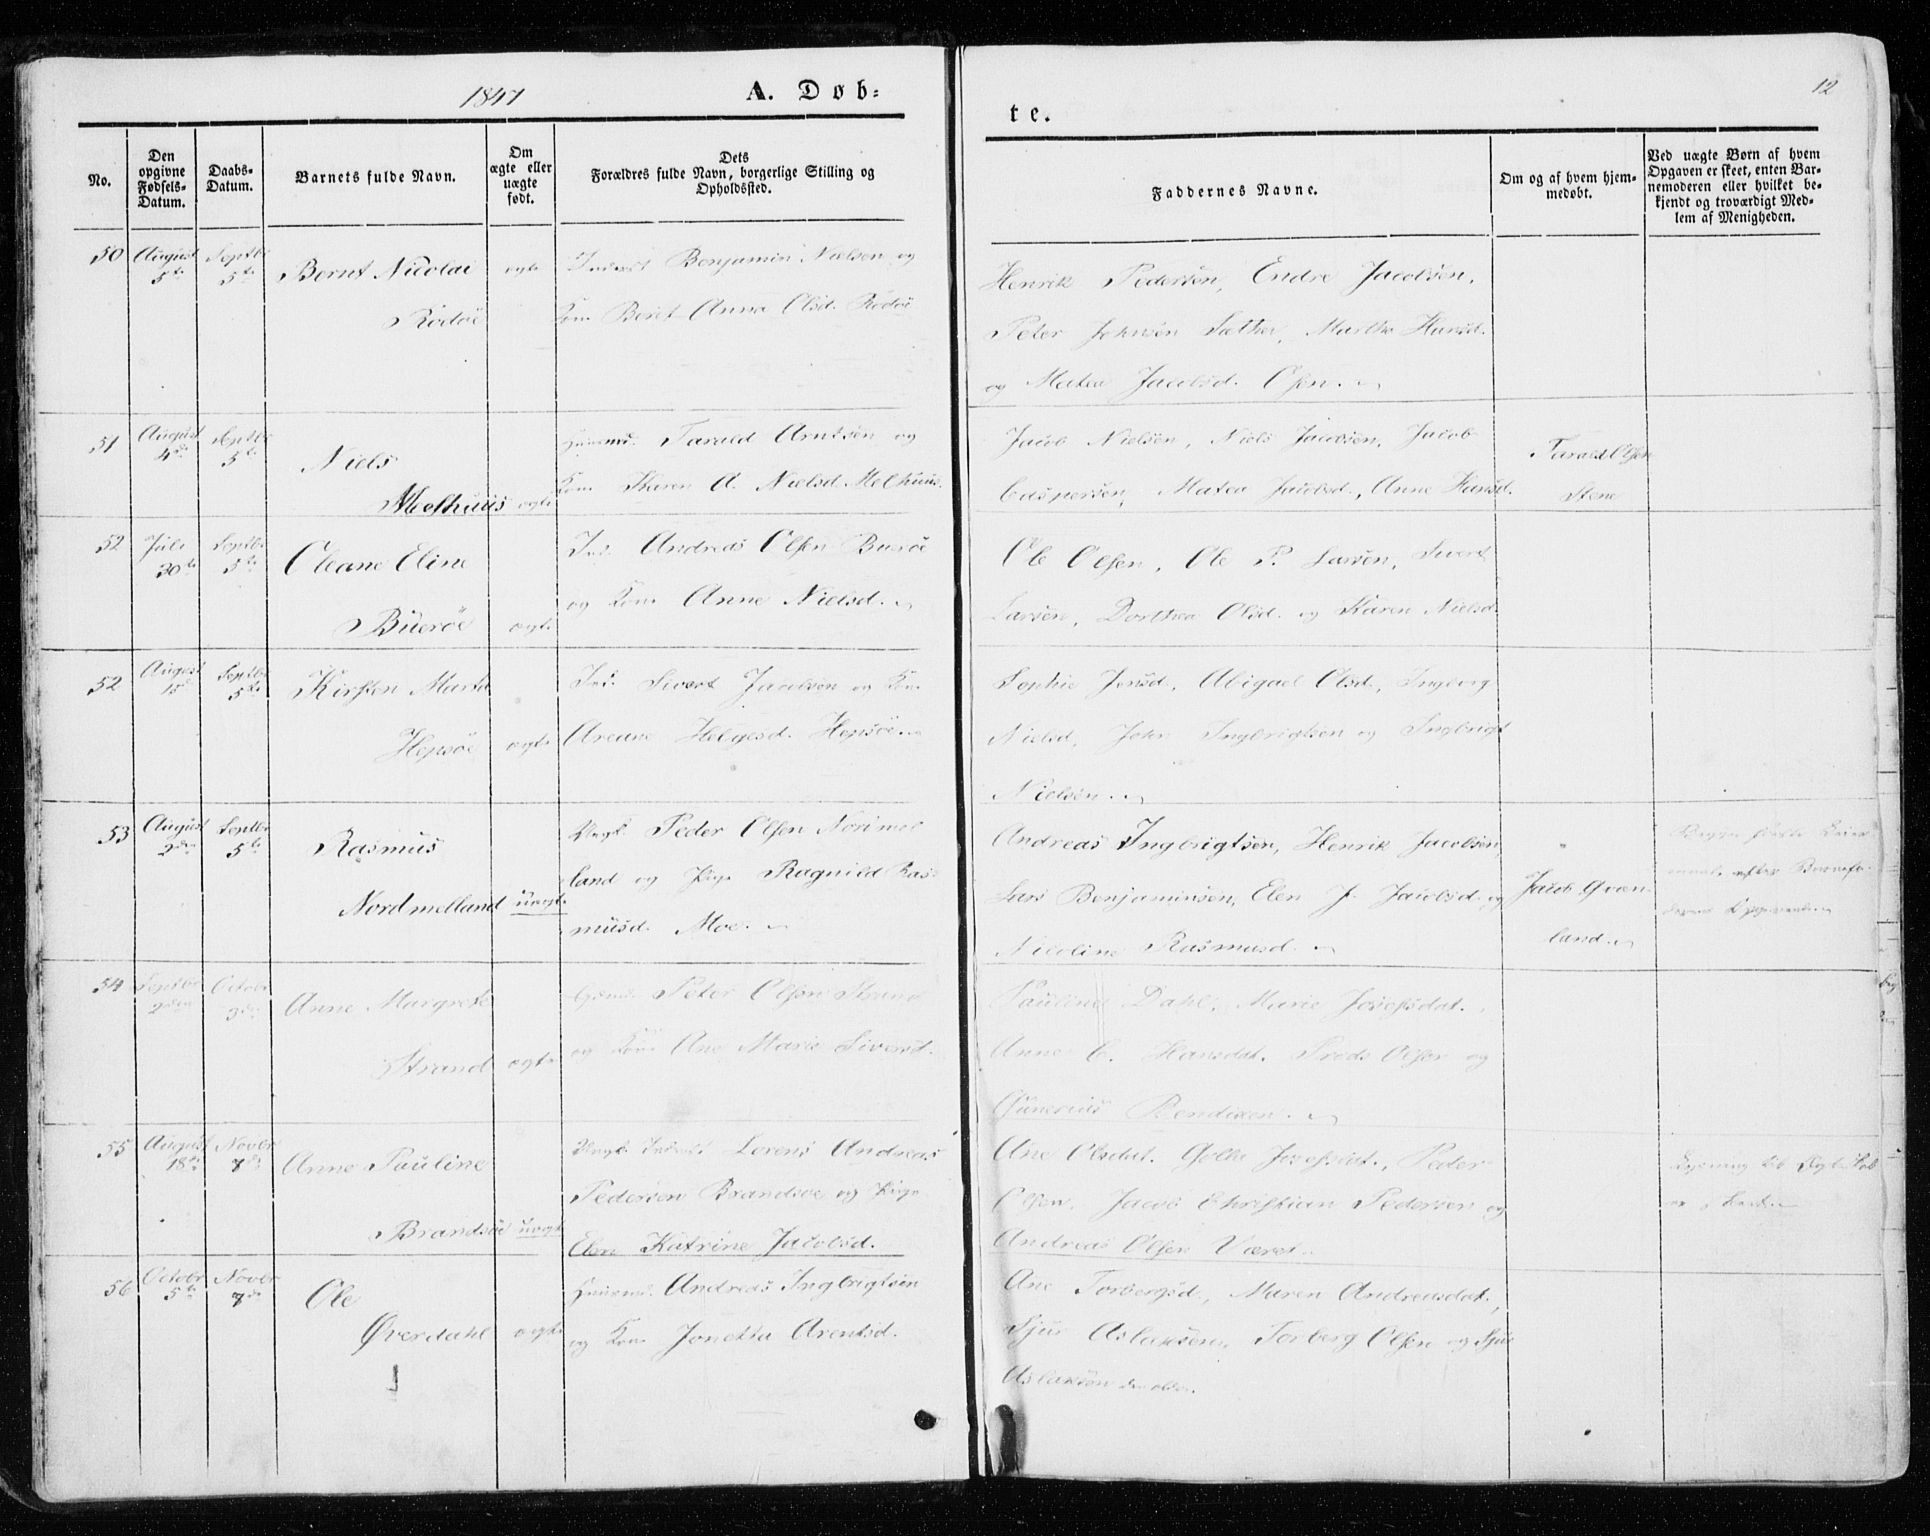 1847
A. Døb-
te.
12
No.
Den opgivne Fødsels-Datum.
Daabs-Datum.
Barnets fulde Navn.
Om ægte eller uægte født.
Dets Forældres fulde Navn, borgerlige Stilling og Opholdssted.
Faddernes Navne.
Om og af hvem hjem-medøbt.
Ved uægte Børn af hvem Opgaven er skeet, enten Bar-nemoderen eller hvilket be-kjendt og troværdigt Med-lem af Menigheden.
50 August 5te Septbr 5te Bernt Nicolai Rødøe ægte
Benjamin Nielsen og
Kone Beret Anna Olsd. Rødøe
Henrik Pedersen, Endre Jacobsen,
Peter Johnsen Sæther, Martha Hansd.
og Matea Jacobsd. Olsen.
51 August 4de Septbr 5te Niels Melhuus ægte
Huusmd. Tarald Arntsen og
Kone Karen A. Nielsd Melhuus.
Jacob Nielsen, Niels Jacobsen, Jacob
Caspersen, Matea Jacobsd., Anne Hansd.
Tarald Olsen
Stene
52 Juli 30te Septbr 5te Oleane Eline Buerøe ægte
Ind. Andreas Olsen Buerøe
og Kone Anne Nielsd.
Ole Olsen, Ole P. Larsen, Sivert
Larsen, Dorthea Olsd. og Karen Nielsd.
52 August 15de Septbr 5te Kirsten Marta Hepsøe ægte
Ind. Sivert Jacobsen og Kone
Areane Helgesd. Hepsøe
Sophie Jensd, Abigael Olsd., Ingborg
Nielsd, John Ingbrigtsen og Ingbrigt
Nielsen.
53 August 2den Septbr 5te Rasmus Nordmelland uægte
Ungk. Peder Olsen Normel
land og Pige Ragnild Ras-
musd. Moe.
Andreas Ingbrigtsen, Henrik Jacobsen,
Lars Benjaminsen, Elen J. Jacobsd. og
Nicoline Rasmusd.
Jacob Qvæn-
land.
Begge første Leier
maal, efter Barnefa-
derens Opgivende
54 Septbr 2den Octobr 3die Anne Margrete Strand ægte
Peter Olsen Strand
og Kone Ane Marie Siversd.
Pauline Dahl, Marie Josefsdat.
Anne C. Hansdat. Olsen og
Bendixen.
55 August 18de Novbr 7de Anne Pauline Brandsøe uægte
Ungk. Lorens Andreas
Pedersen Brandsøe og Pige
Elen Katrine Jacobsd.
Ane Olsdat. Josefsdat., Peder
Olsen, Jacob Christian Pedersen og
Andreas Olsen Været.
Lysning til Ægteskab
56 Octobr 5te Novbr 7de Ole Øverdahl ægte
Huusmd. Andreas Ingbrigtsen
og Kone Jonetta Arentsd.
Ane Torbergsd., Maren Andreasdat.,
Sjur Aslaksen, Torberg Olsen og Sjur
Aslaksen den ældre.